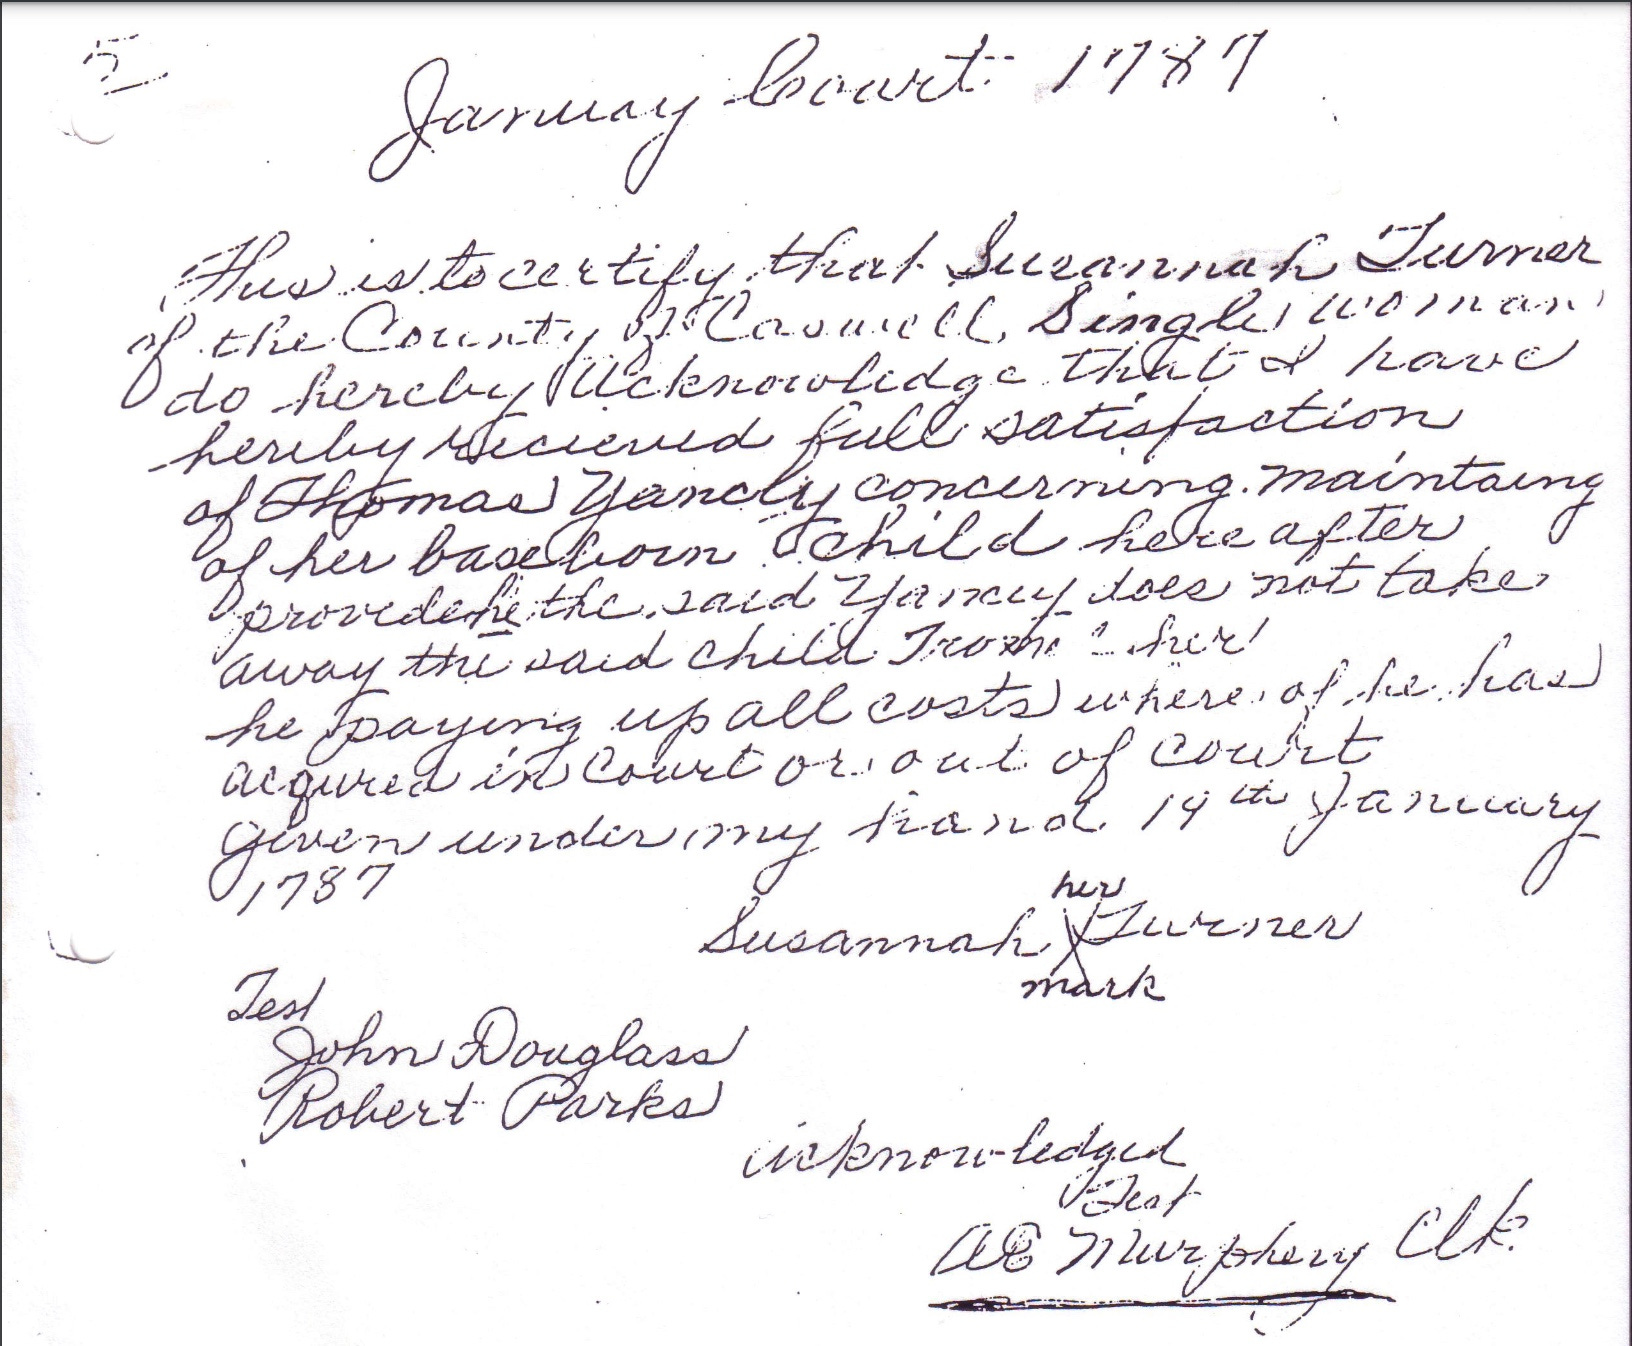 5
January Court 1787
This is to certify that Susannah Turner
of the County of Caswell, Single woman
do hereby Acknowledge that I have
hereby recieved full satisfaction
of Thomas Yancly concerning maintaing
of her base born child here after
provide he the said Yancey does not take
away the said child From her
he paying up all costs where of he has
acqured in Court or out of court
given under my hand 19th January
1787
her
Susannah X Turner
mark
Test
John Douglass
Robert Parks
acknowledged
Test
AE Murphery Clk.